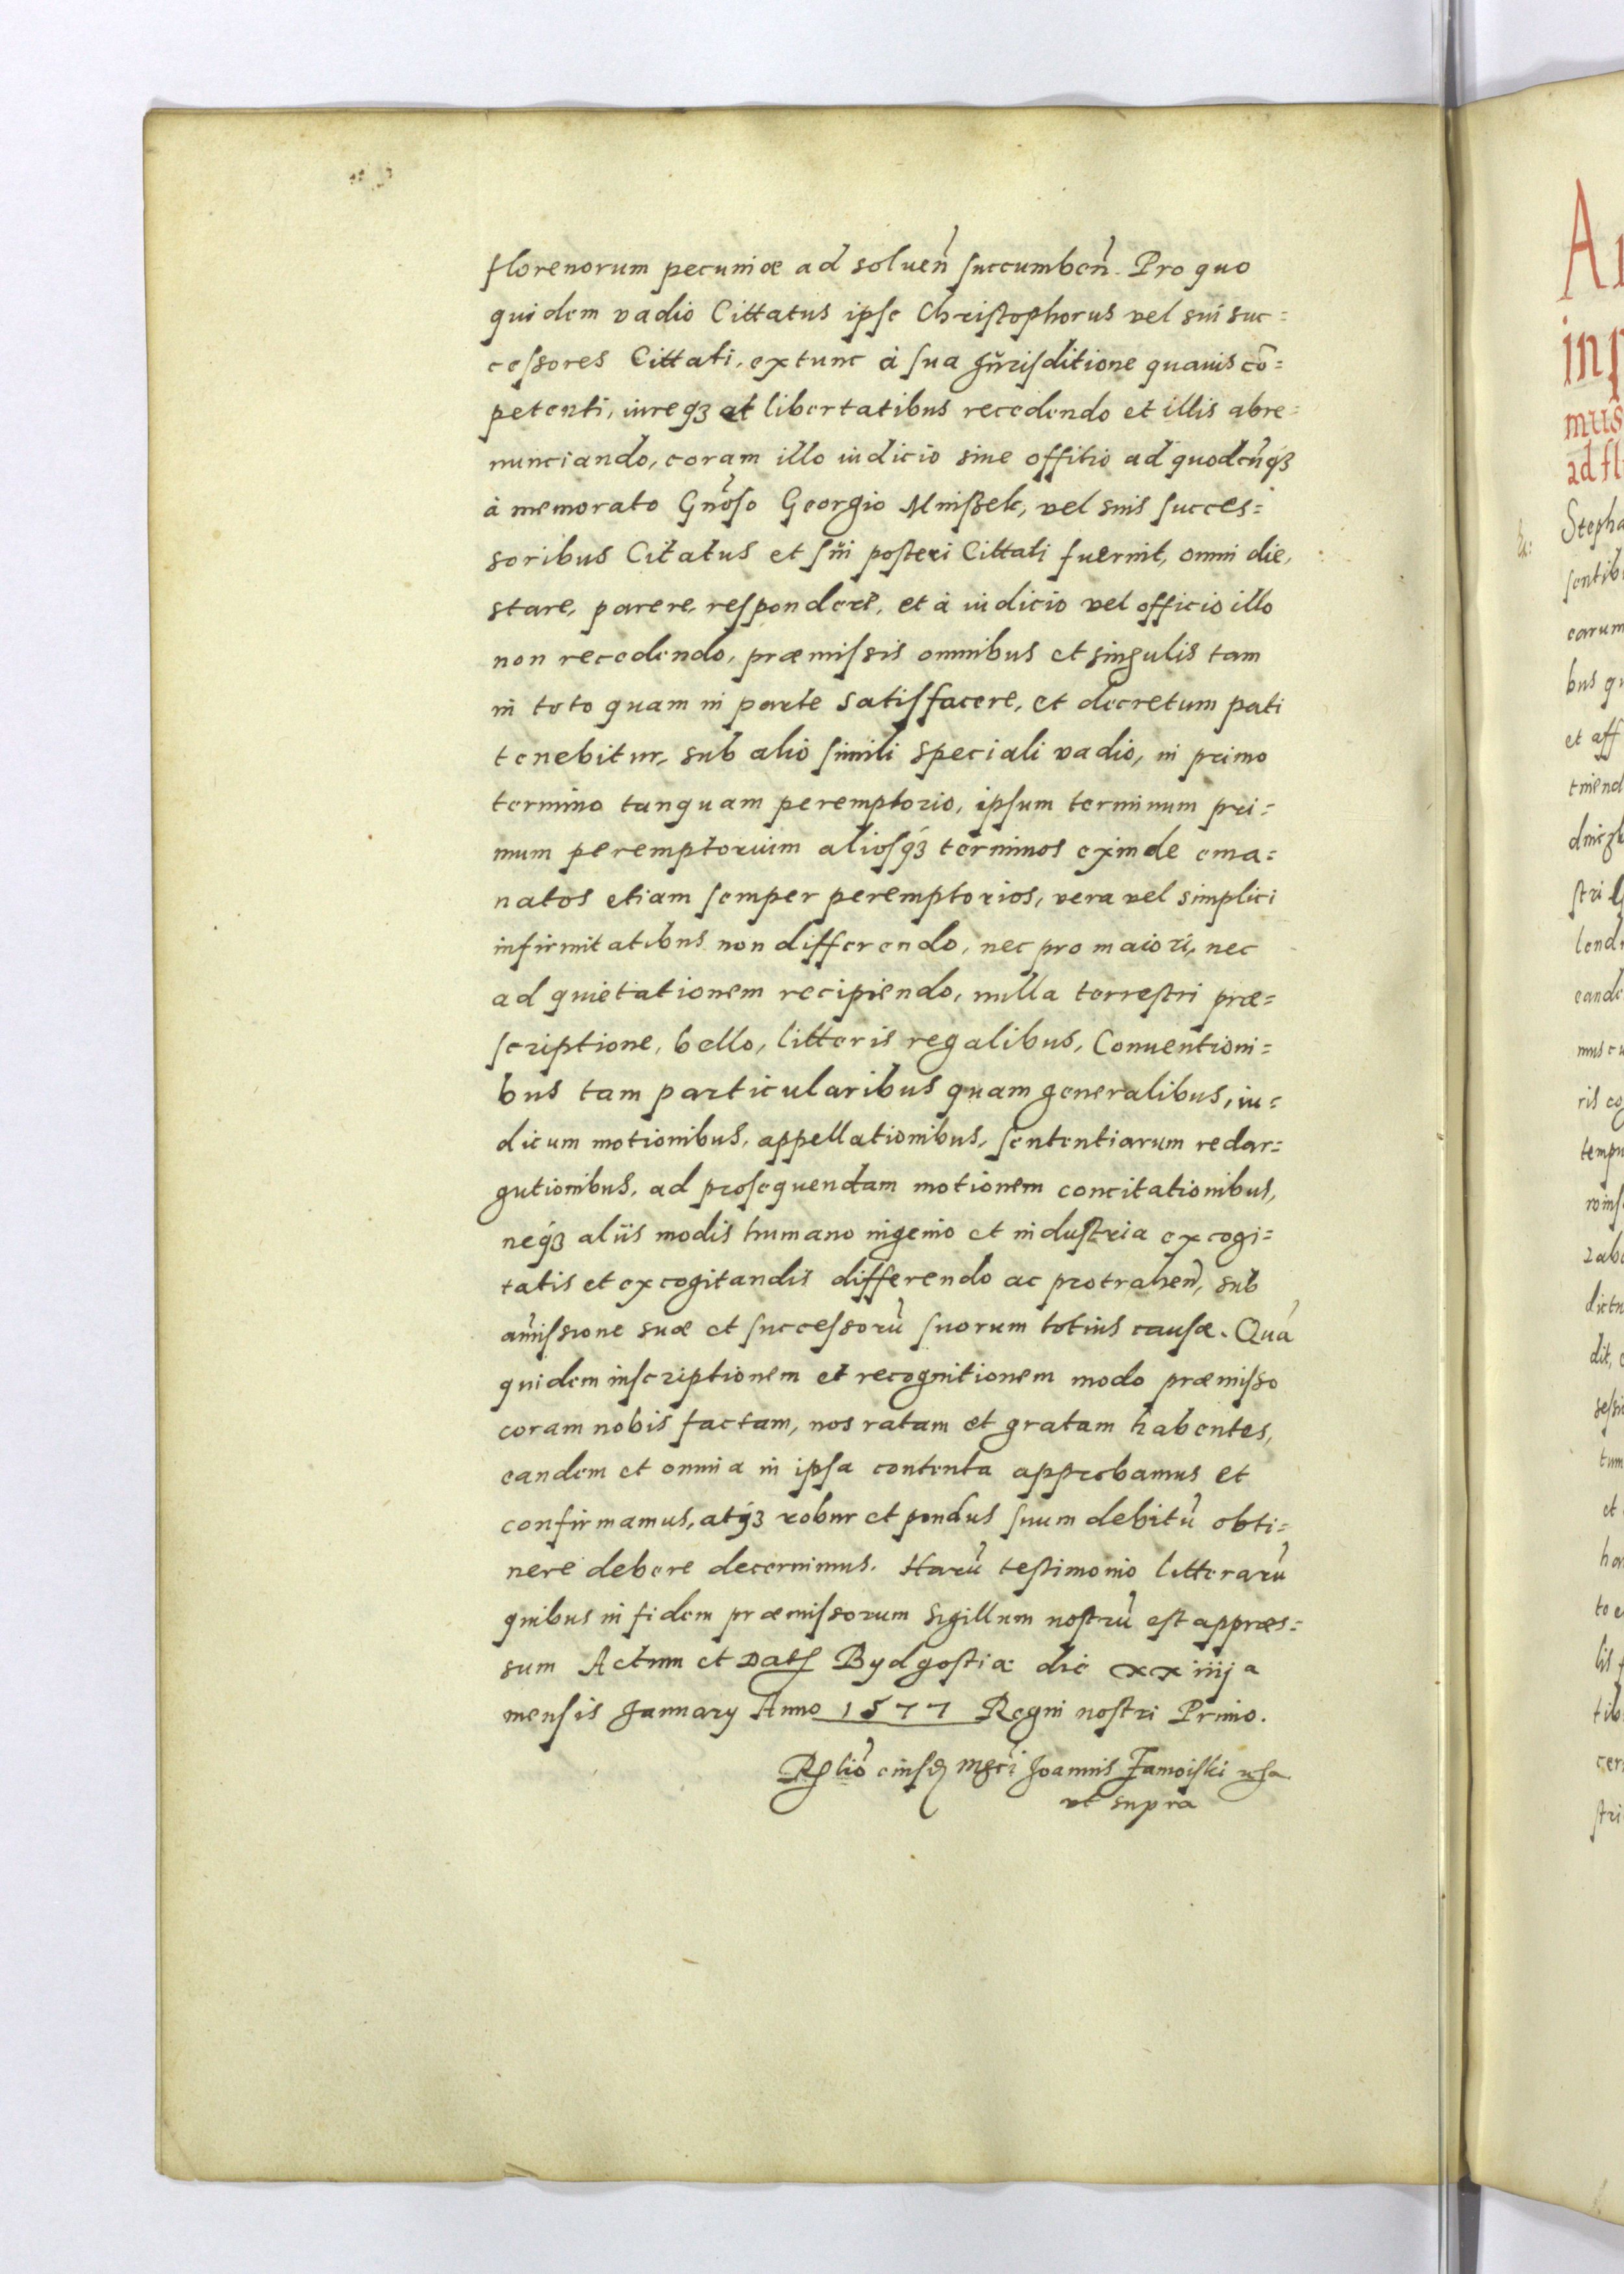 florenorum pecuniæ ad soluen̄ succumben̄. Pro quo
quidem vadio Cittatus ipse Christophorus vel sui suc=
cessores Cittati, extunc à sua Jurisditione quauis cō=
petenti, iureqꝫ et libertatibus recedendo et illis abre=
nunciando, coram illo iudicio siue offitio ad quodcūqꝫ
à memorato Gn̄oso Georgio Mniszek, vel suis succes=
soribus Citatus et sui posteri Cittati fuerint, omni die,
stare, parere, respondere, et à iudicio vel officio illo
non recedendo, præmissis omnibus et singulis tam
in toto quam in parte satisfacere, et decretum pati
tenebitur, sub alio simili speciali vadio, in primo
termino tanquam peremptorio, ipsum terminum pri=
mum peremptorium aliosqꝫ terminos exinde ema=
natos etiam semper peremptorios, vera vel simplici
infirmitatibus non differendo, nec pro maiori, nec
ad quietationem recipiendo, nulla terrestri præ=
scriptione, bello, litteris regalibus, Conuentioni=
bus tam particularibus quam generalibus, iu=
dicum motionibus, appellationibus, sententiarum redar=
gutionibus, ad prosequendam motionem concitationibus,
neqꝫ aliis modis humano ingenio et industria excogi=
tatis et excogitandis differendo ac protrahen̄, sub
amissione suæ et successorū suorum totius causæ. Quā
quidem inscriptionem et recognitionem modo præmisso
coram nobis factam, nos ratam et gratam habentes,
eandem et omnia in ipsa contenta approbamus et
confirmamus, atqꝫ robur et pondus suum debitū obti=
nere debere decernimus. Harū testimonio litterarū
quibus in fidem præmissorum Sigillum nostrū est appres=
sum Actum et Dat Bydgostiæ die xxiiij a
mensis January Anno 1577 Regni nostri Primo.
Rlio eiusd Mgci Joannis Zamoiski
vt supra